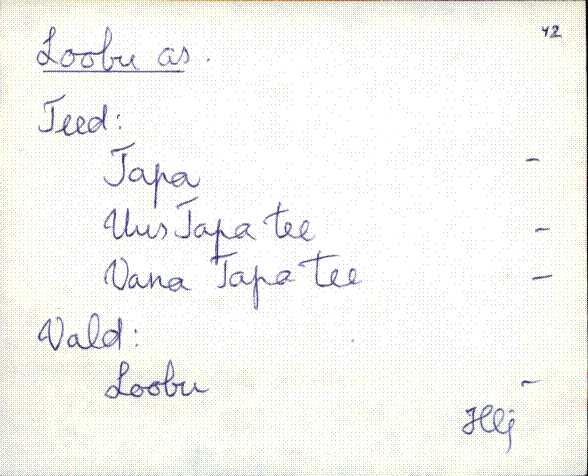 42
Loobu as.
Teed:
Tapa -
Uus Tapa tee -
Vana Tapa tee -
Vald:
Loobu -
Hlj